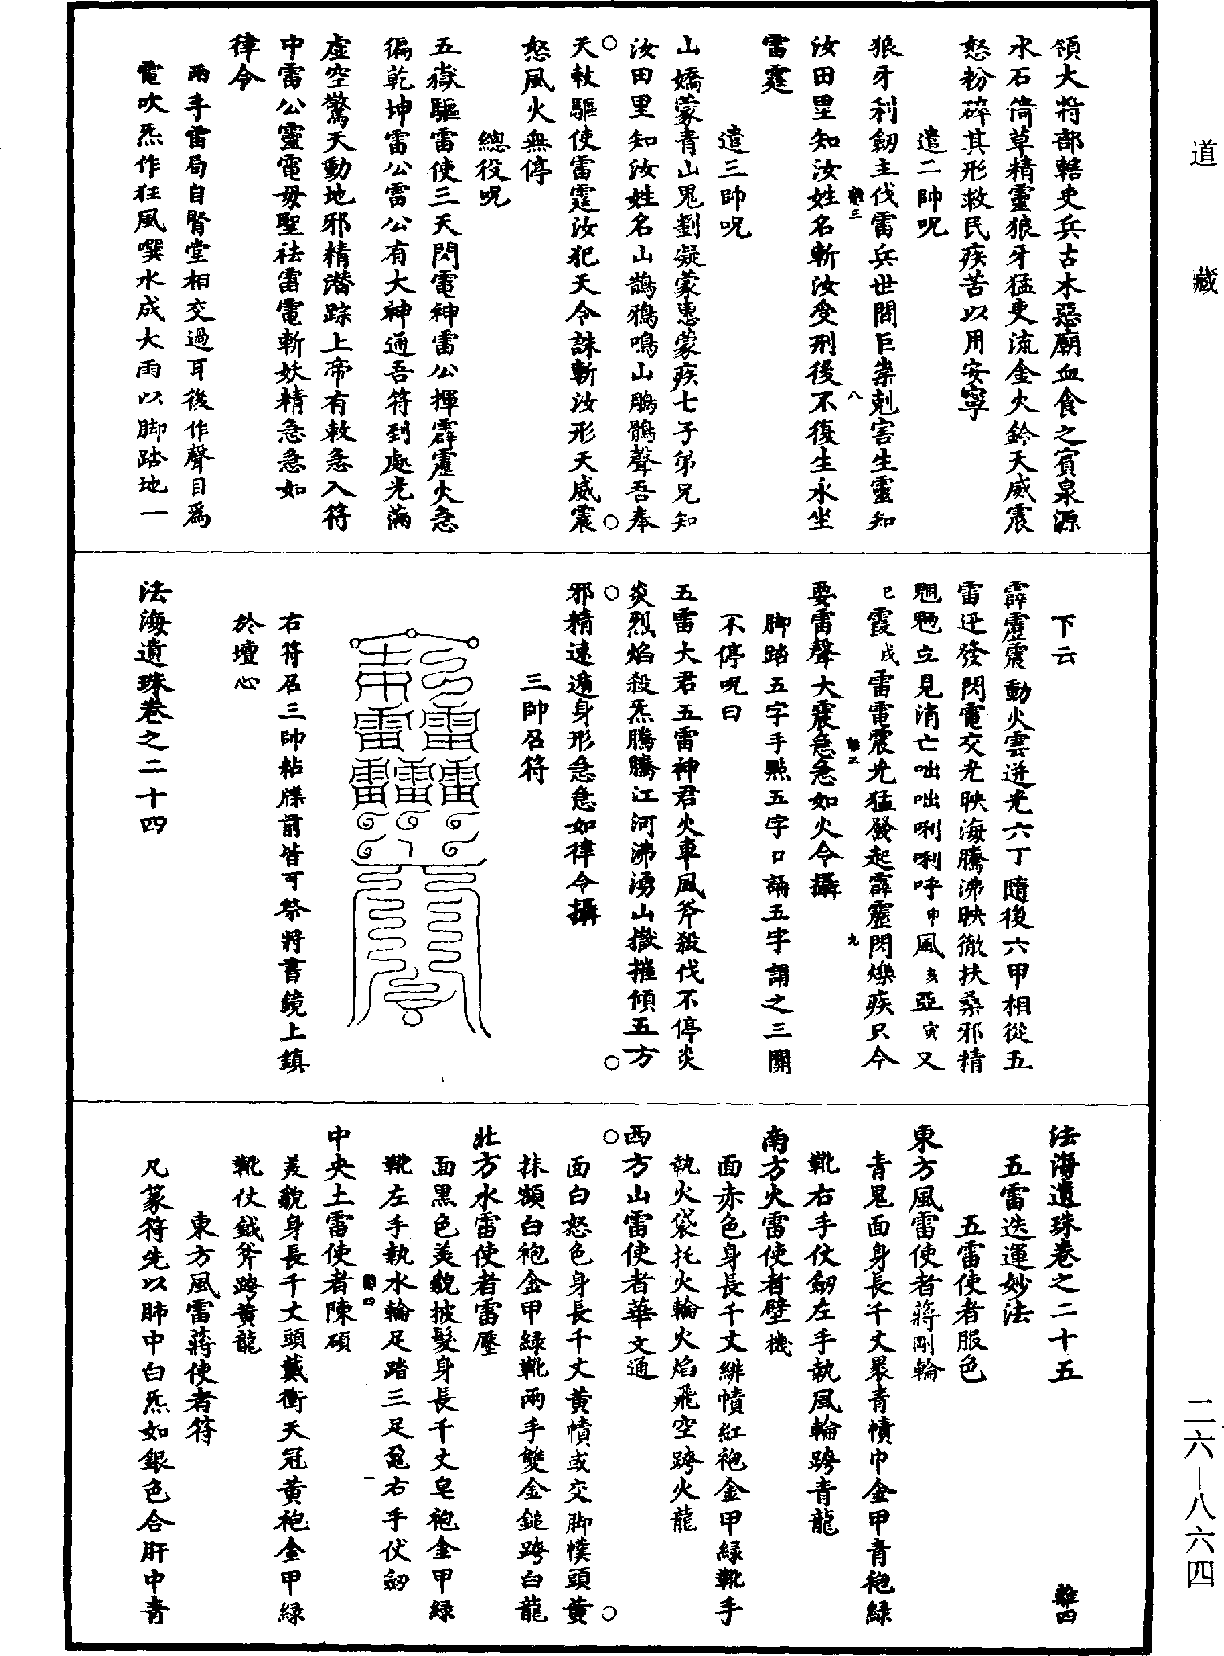 道藏
領大將部轄吏兵古木惡廟血食之賓泉源
水石倚草精靈狼牙猛吏流金火鈴天威震
怒粉碎其形救民疾苦以用安寧
遣二帥呪
狼牙利劒主伐雷兵世間巨祟剋害生靈知
難三
八
汝田里知汝姓名斬汝受刑後不復生永坐
雷霆
遣三帥呪
山嬌蒙青山鬼劉凝蒙惠蒙疾七子弟兄知
汝田里知汝姓名山鵲鴉鳴山鵰鶻聲吾奉
天敕驅使雷霆汝犯天令誅斬汝形天威震
怒風火無停
總役呪
五嶽驅雷使三天閃電神雷公揮霹靂火急
徧乾坤雷公雷公有大神通吾符到處光滿
虛空驚天動地邪精潛踪上帝有敕急入符
中雷公靈電母聖祛雷電斬妖精急急如
律令
兩手雷局自腎堂相交過耳後作聲目爲
電吹炁作狂風噀水成大雨以脚踏地一
下云
霹靂震動火雲迸光六丁隨後六甲相從五
雷迅發閃電交光映海騰沸映徹扶桑邪精
魍魎立見消亡咄咄唎唎呼申風亥亞寅又
巳霞戌雷雷震光猛發起霹靂閃爍疾只今
難三
九
要雷聲大震急急如火令攝
脚踏五字手點五字口誦五字謂之三關
不停呪曰
五雷大君五雷神君火車風斧殺伐不停炎
炎烈焰殺炁騰騰江河沸湧山嶽摧傾五方
邪精速遁身形急急如律令攝
三帥召符
右符召三帥粘牒前皆可祭將書鏡上鎮
於壇心
法海遺珠卷之二十四
法海遺珠卷之二十五
難四
五雷迭運妙法
五雷使者服色
東方風雷使者蔣剛輪
青鬼面身長千丈裹青幘巾金甲青袍綠
靴右手仗劒左手執風輪跨青龍
南方火雷使者壁機
面赤色身長千丈緋幘紅袍金甲綠靴手
執火袋托火輪火焰飛空跨火龍
西方山雷使者華文通
面白怒色身長千丈黃幘或交脚幞頭黃
抹額白袍金甲綠靴兩手雙金鎚跨白龍
北方水雷使者雷壓
面黑色美貌披髮身長千丈皂袍金甲綠
靴左手執水輪足踏三足黿右手仗劒
難四
一
中央土雷使者陳碩
美貌身長千丈頭戴衝天冠黃袍金甲綠
靴仗鉞斧跨黃龍
東方風雷蔣使者符
凡篆符先以肺中白炁如銀色合肝中青
二六—八六四